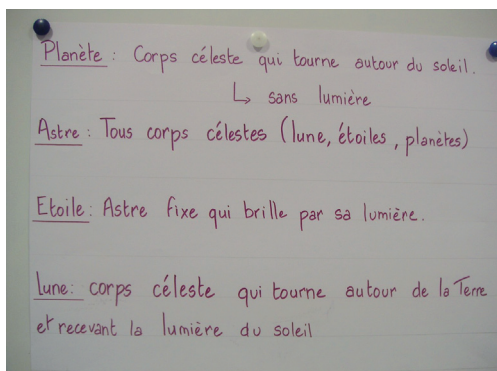 Planète : Corps céleste qui tourne autour du soleil.
↳ sans lumière
Astre : Tous corps célestes (lune, étoiles, planètes)
Etoile : Astre fixe qui brille par sa lumière.
lune : corps céleste qui tourne autour de la Terre
et recevant la lumière du soleil